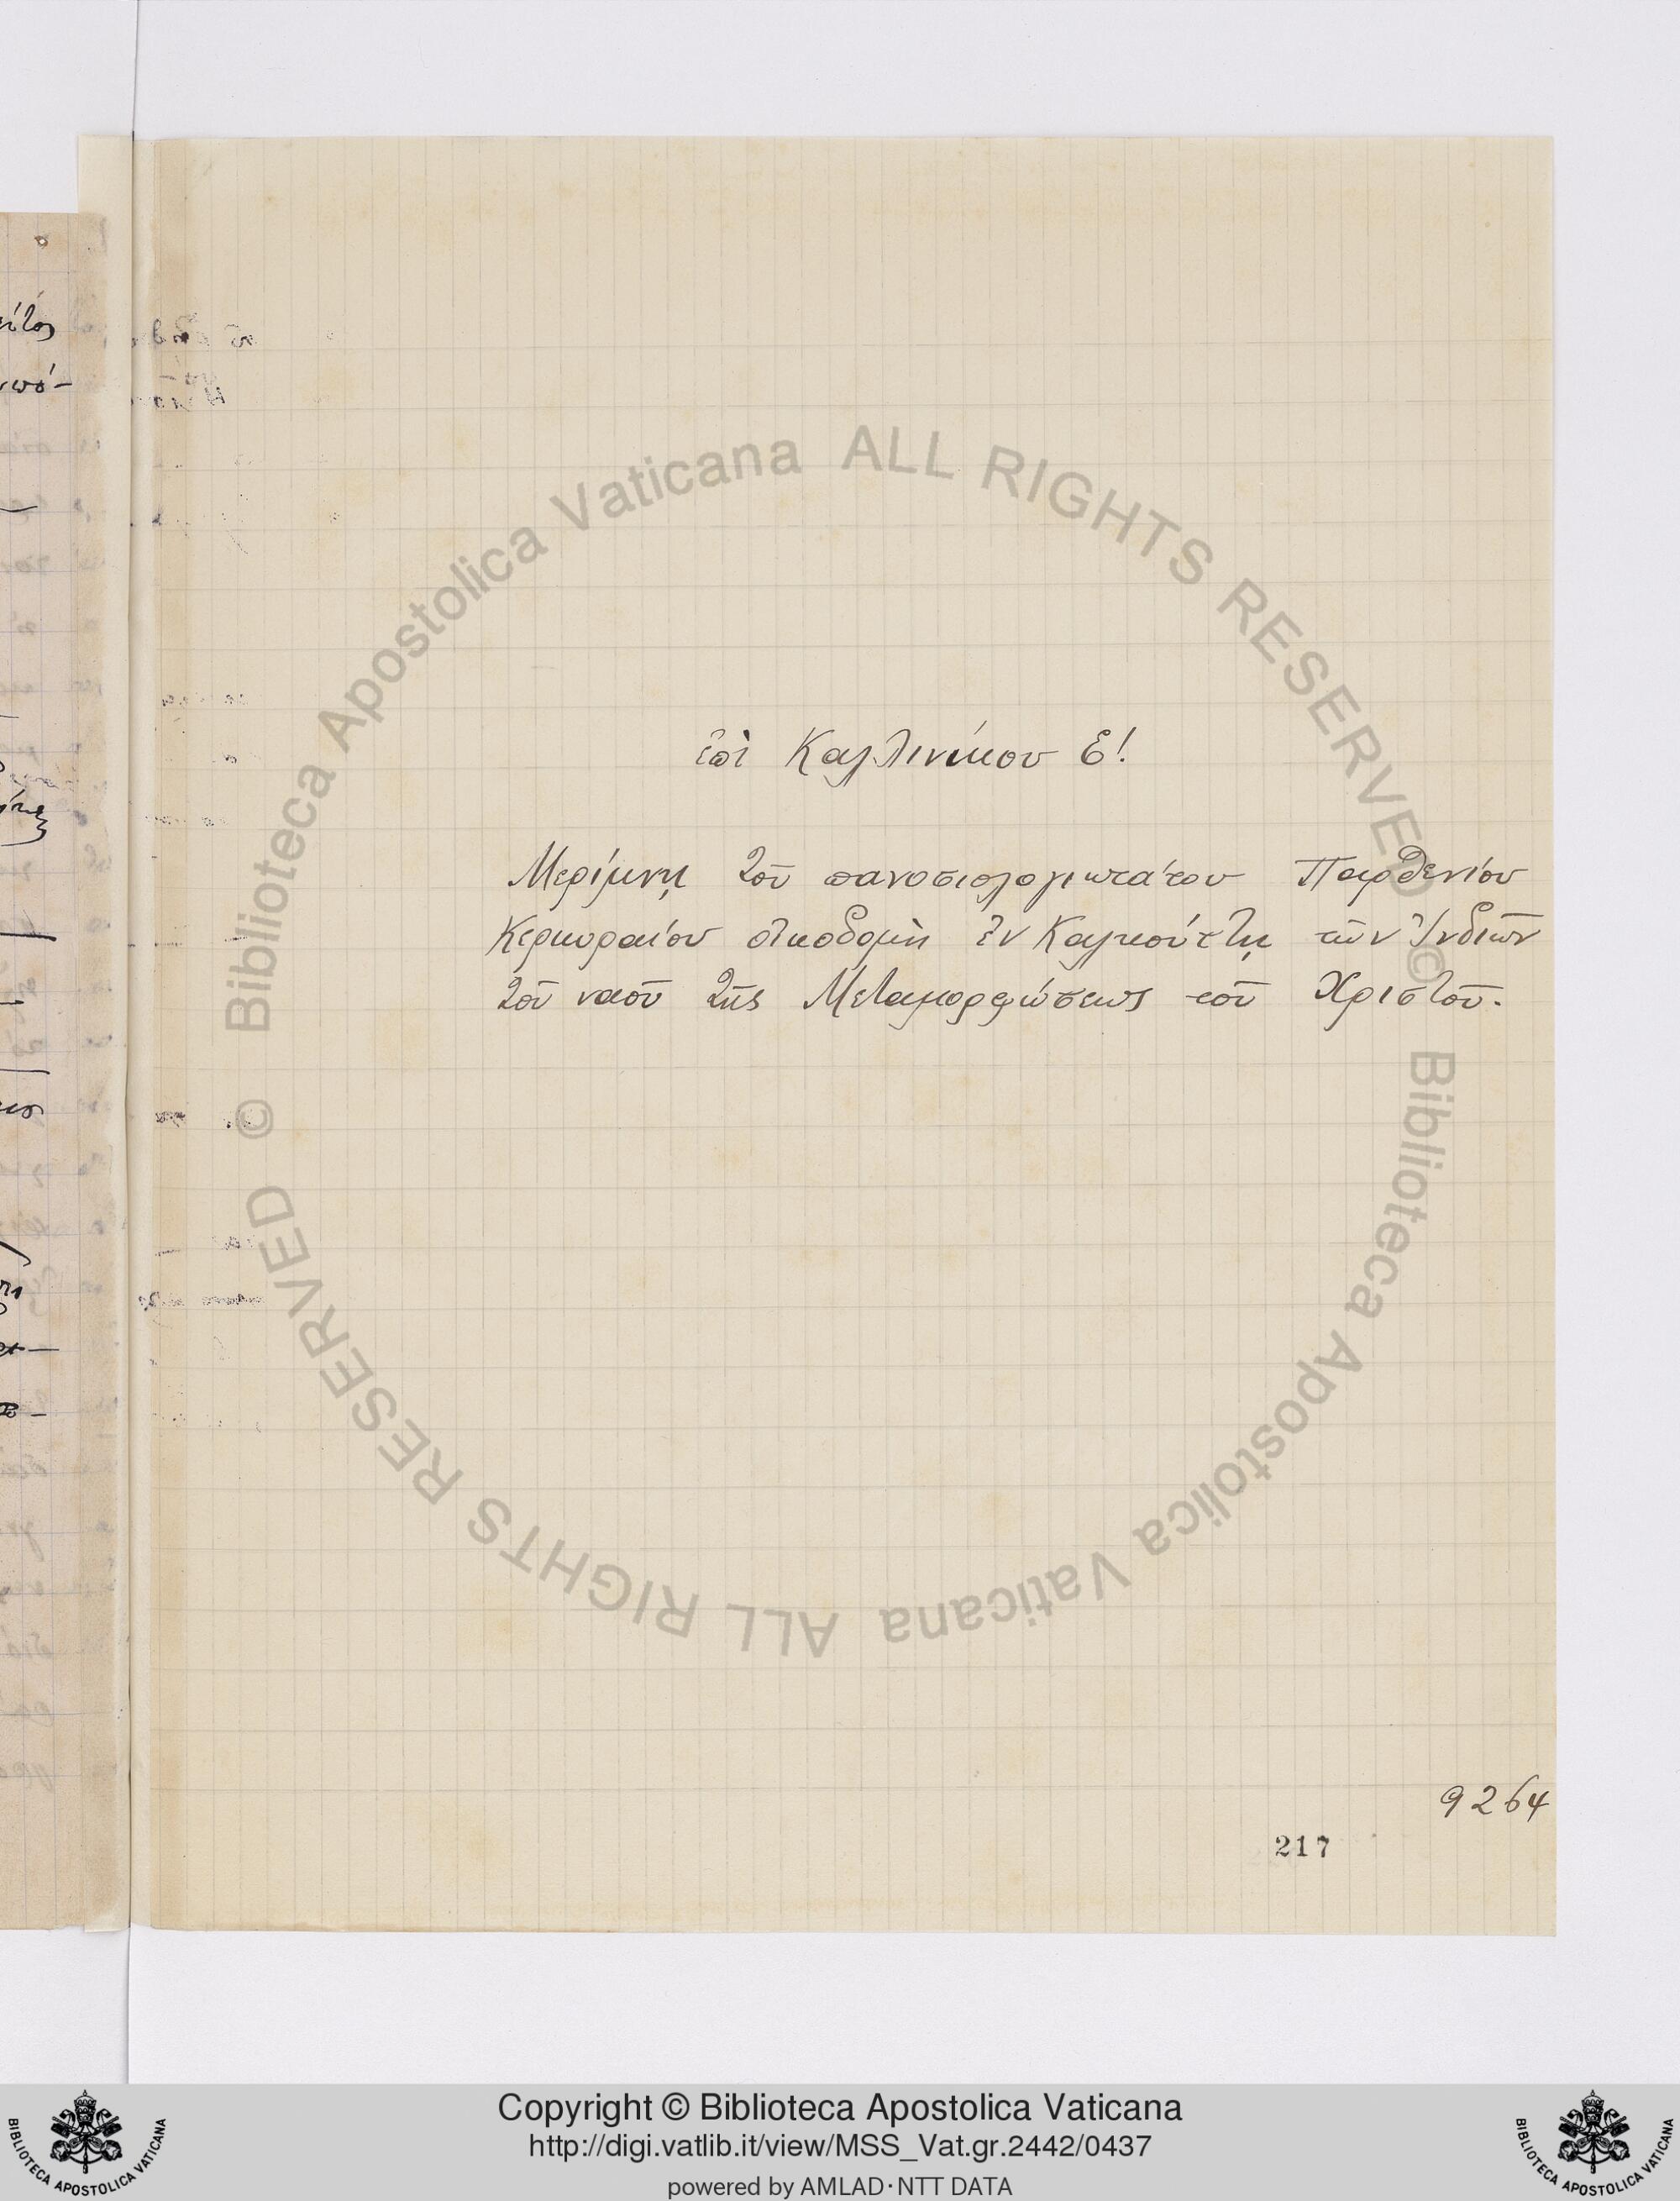 ἐπὶ Καλλινίκου Ε!
Μερίμνῃ τοῦ πανοσιολογιωτάτου Παρθενίου
Κερκυραίου οἰκοδομὴ ἐν Καλκούττῃ τῶν Ἰνδιῶν
τοῦ ναοῦ τῆς Μεταμορφώσεως τοῦ Χριστοῦ.
9264
217
© Biblioteca Apostolica Vaticana ALL RIGHTS RESERVED
© Biblioteca Apostolica Vaticana ALL RIGHTS RESERVED
Copyright © Biblioteca Apostolica Vaticana
http://digi.vatlib.it/view/MSS_Vat.gr.2442/0437
powered by AMLAD·NTT DATA
BIBLIOTECA APOSTOLICA VATICANA
BIBLIOTECA APOSTOLICA VATICANA